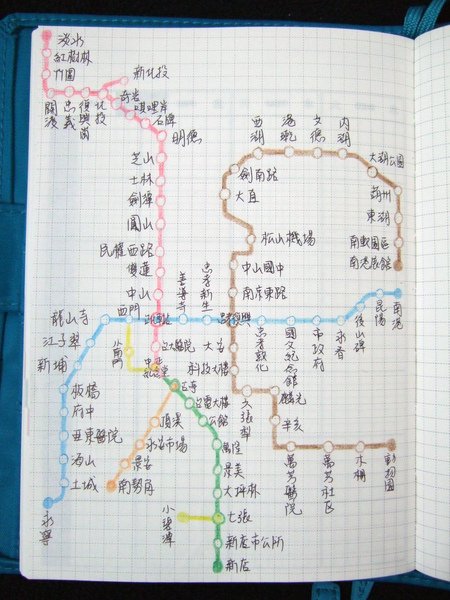 淡水
紅樹林
竹圍
關渡
忠義
復興崗
北投
新北投
奇岩
唭哩岸
石牌
明德
芝山
士林
劍潭
圓山
民權西路
雙連
中山
西湖
港墘
文德
內湖
大湖公園
葫州
東湖
南軟園區
南港展館
劍南路
大直
松山機場
中山國中
南京東路
龍山寺
西門
善導寺
忠孝新生
忠孝敦化
國父紀念館
市政府
永春
後山埤
昆陽
南港
江子翠
新埔
板橋
府中
亞東醫院
海山
土城
永寧
小南門
台大醫院
大安
科技大樓
古亭
台電大樓
公館
萬隆
景美
大坪林
七張
小碧潭
新店市公所
新店
頂溪
永安市場
景安
南勢角
六張犁
麟光
辛亥
萬芳醫院
萬芳社區
木柵
動物園